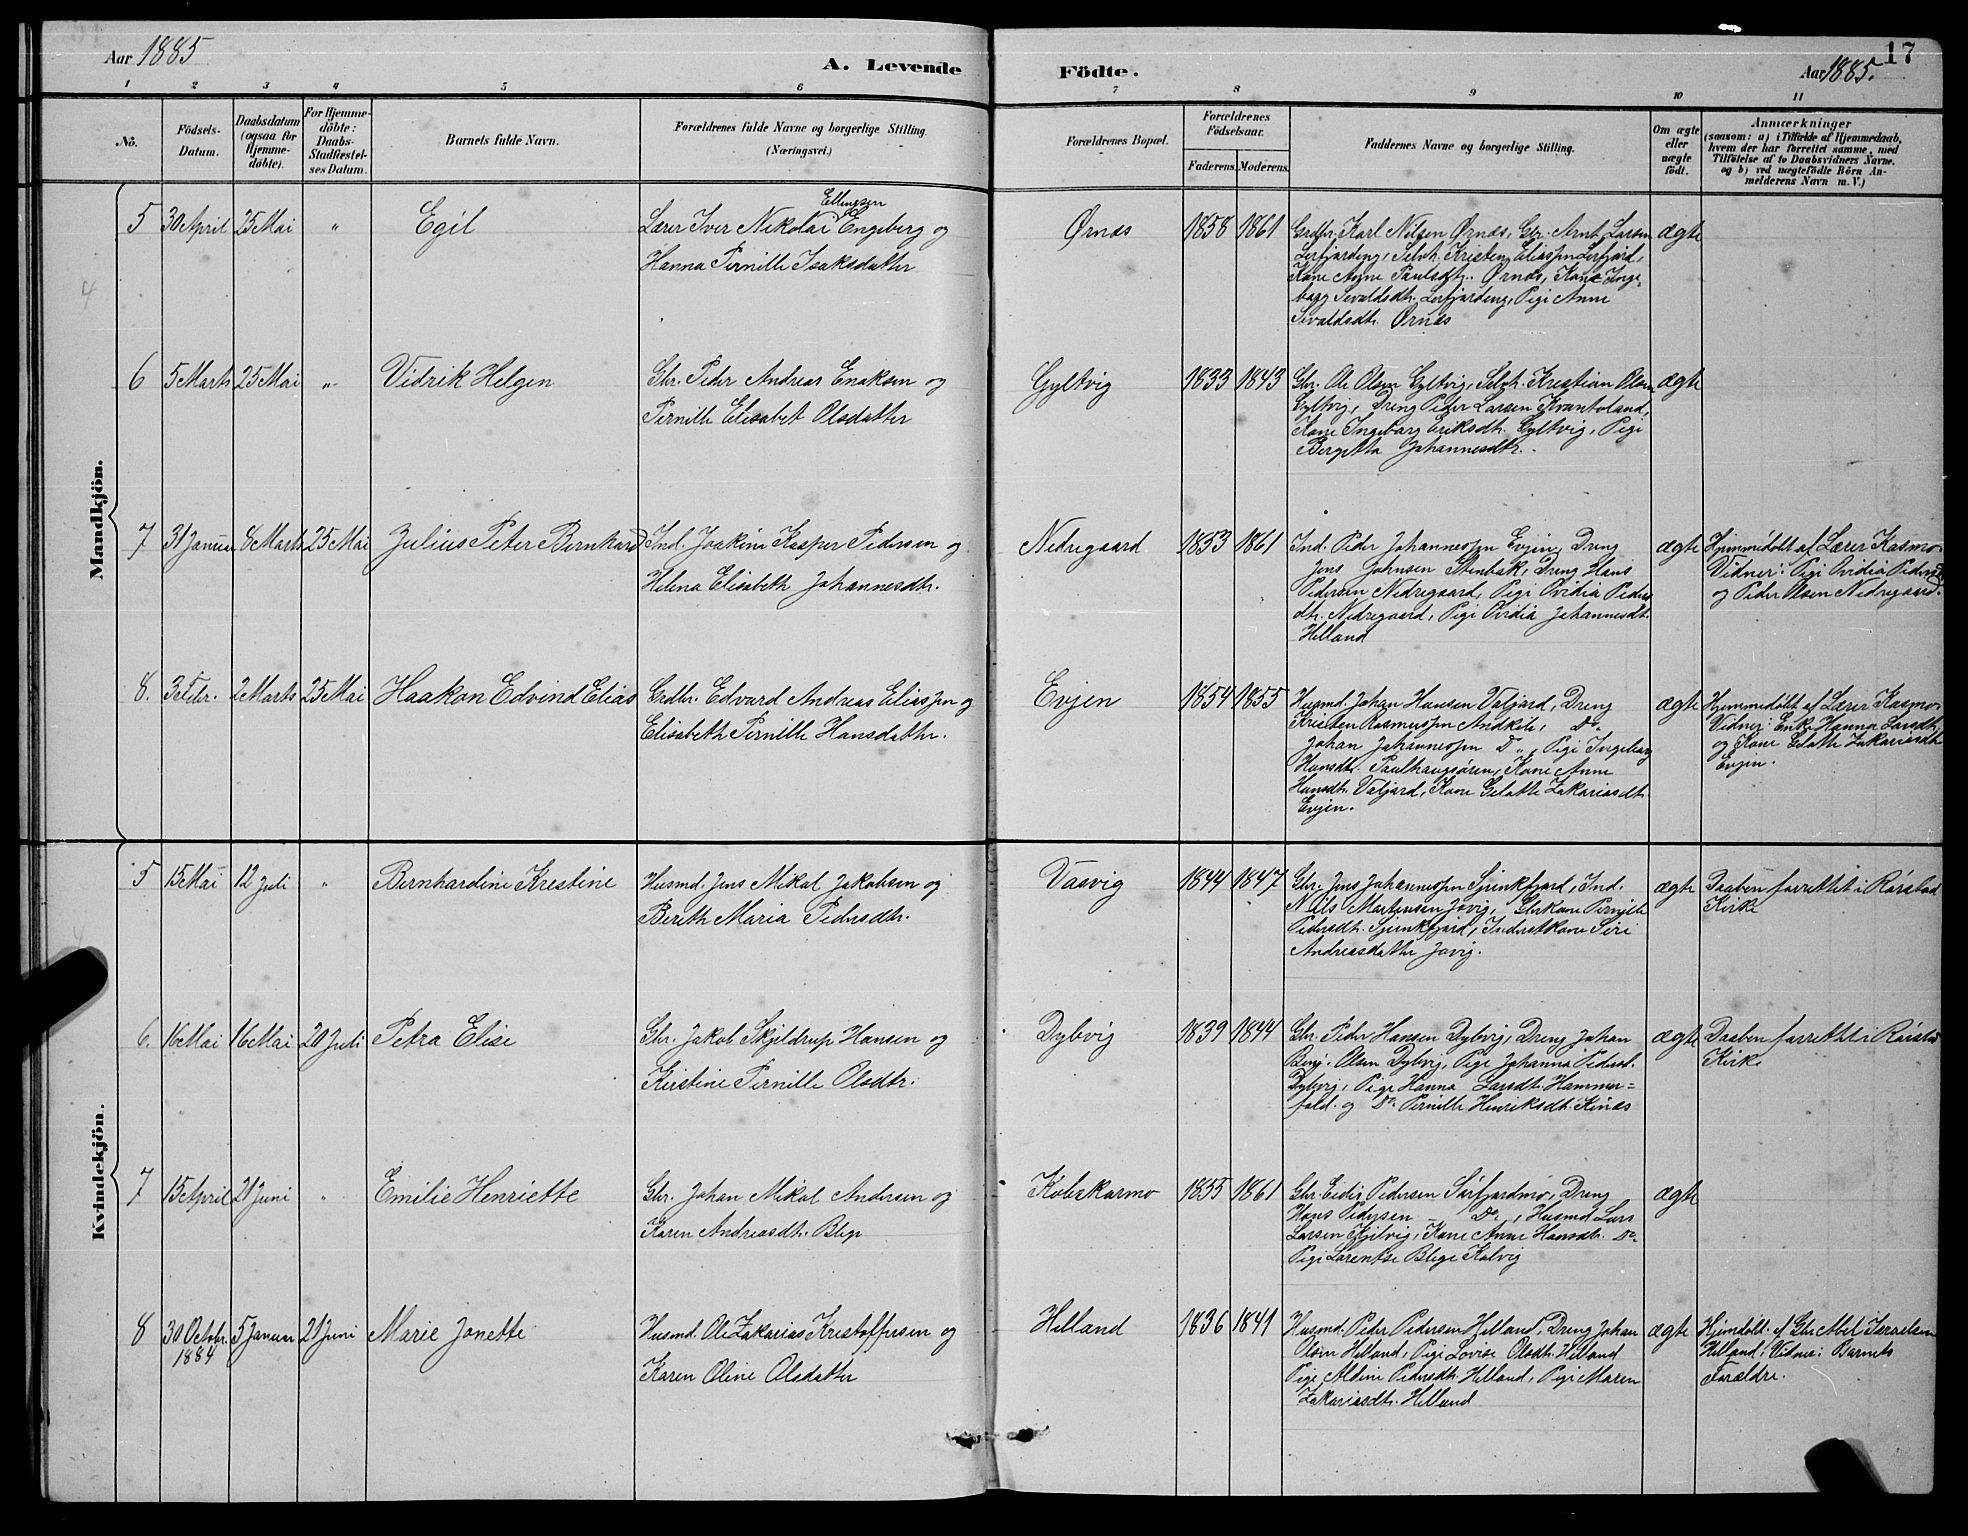 Aar 1885
A. Levende
Födte.
Aar 1885.
17
1 2 3 4 5 6 7 8 9 10 11
No.
Födsels-
Datum.
Daabsdatum
(ogsaa for
Hjemme-
döbte).
For Hjemme-
döbte:
Daabs-
Stadfæstel-
ses Datum.
Barnets fulde Navn.
Forældrenes fulde Navne og borgerlige Stilling.
(Næringsvei.)
Forældrenes Bopæl.
Forældrenes
Födselsaar.
Faderens. Moderens.
Faddernes Navne og borgerlige Stilling.
Om ægte
eller
uægte
födt.
Anmærkninger
(saasom: a) i Tilfælde af Hjemmedaab,
hvem der har forrettet samme, med
Tilföielse af to Daabsvidners Navne,
og b) ved uægtefödte Börn An-
melderens Navn m. V.)
Mandkjön.
4
5 30 April 25 Mai " Egil
Ellingsen
Lærer Iver Nikolai Engeberg og
Hanna Pernille Isaksdatter
Ørnæs 1858 1861
Grdbr. Karl Nilsen Ørnæs, Gbr. Arnt Larsen
Lerfjarding, Selvh. Kristen Eliassen Lerfjord,
Kone Anne Paulsdtr. Ørnæs, Kone Inge-
borg Sivaldsdtr. Lerfjarding, Pige Anne
Sivaldsdtr. Ørnæs
ægte
6 5 Marts 25 Mai " Vidrik Helgen
Gbr. Peder Andreas Enoksen og
Pernille Elisabet Olsdatter
Gyltvig 1833 1843
Gbr. Ole Olsen Gyltvig, Selvh. Kristian Olsen
Gyltvig, Dreng Peder Larsen Kvantoland,
Kone Ingeborg Eriksdtr. Gyltvig, Pige
Bergitta Johannesdtr.
ægte
7 31 Januar 8 Marts 25 Mai Julius Peter Bernhard
Ind. Joakim Kasper Pedersen og
Helena Elisabeth Johannesdtr.
Nedregaard 1853 1861
Ind. Peder Johannessen Evjen, Dreng
Jens Johnsen Stenbak, Dreng Hans
Pedersen Nedregaard, Pige Ovidia Peders
dtr. Nedregaard, Pige Ovidia Johannesdtr.
Helland
ægte
Hjemmedøbt af Lærer Kasmo
Vidner: Pige Ovidia Pedersd
og Peder Olsen Nedregaard.
8. 3 Febr. 2 Marts 25 Mai Haakon Edvind Elias
Grdbr. Edvard Andreas Eliassen og
Elisabeth Pernille Hansdatter.
Evjen 1854 1855
Husmd. Johan Hansen Valjord, Dreng
Kristen Rasmussen Andkile, Do.
Johan Johannessen Do., Pige Ingeborg
Hansdtr. Paulhaugsøren, Kone Anne
Hansdtr. Valjord, Kone Gelatte Zakariasdtr.
Evjen.
ægte
Hjemmedøbt af Lærer Kasmo
Vidner: Enke Hanna Larsdtr.
og Kone Gelatte Zakariasdtr
Evjen.
Kvindekjön.
4
5 15 Mai 12 Juli " Bernhardine Kristine
Husmd. Jens Mikal Jakobsen og
Bereth Maria Pedersdtr.
Vasvig 1844 1847
Gbr. Jens Johannessen Sjunkfjord, Ind.
Nils Martinsen Jovig, Gbrkone Pernille
Pedersdtr. Sjunkfjord, Inderstkone Siri
Andreasdatter Jovig.
ægte
Daaben forrettet i Rørstad
Kirke
6. 16 Mai 16 Mai 20 Juli Petra Elise
Gbr. Jakob Skjeldrup Hansen og
Kirstine Pernille Olsdtr.
Dybvig 1839 1844
Gbr. Peder Hansen Dybvig, Dreng Johan
Benj. Olsen Dybvig, Pige Johanna Pedersd.
Dybvig, Pige Hanna Larsdt. Hammer-
fald. og Do. Pernille Henriksdt. Kinæs
ægte
Daaben forrettet i Rørstad
Kirke
7 15 April 21 Juni " Emilie Henriette
Gbr. Johan Mikal Andersen og
Karen Andreasdtr. Blix
Kobskarmo 1855 1861
Gbr. Eidis Pedersen Sørfjordmo, Dreng
Hans Pedersen Do., Husmd Lars
Larsen Kjelvig, Kone Anne Hansdtr. Do.
Pige Larentse Blix Kalvig
ægte
8 30 Octobr. 5 Januar 21 Juni Marie Jonette
1884
Husmd. Ole Zakarias Kristoffersen og
Karen Oline Olsdatter
Helland 1836 1841
Husmd. Peder Pedersen Helland, Dreng Johan
Olsen Helland, Pige Lovise Olsdtr. Helland
Pige Aldine Pedersdtr. Helland, Pige Maren
Zakariasdtr. Helland
ægte
Hjemdøbt. af Gbr Abel Israelsen
Helland, Vidner: Barnets
Forældre.